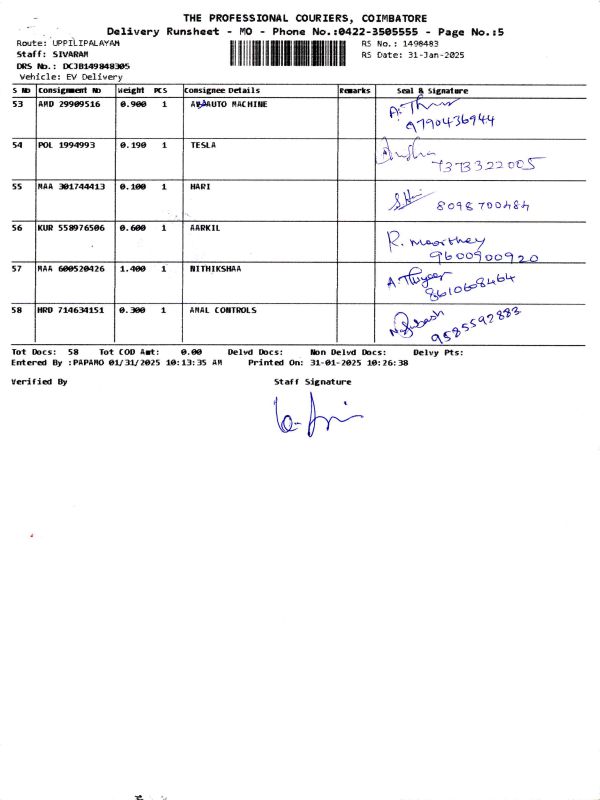 THE PROFESSIONAL COURIERS, COIMBATORE
Delivery Runsheet - MO - Phone No.:0422-3505555 - Page No.:5
Route: UPPILIPALAYAM RS No.: 1498483
Staff: SIVARAM RS Date: 31-Jan-2025
DRS No.: DCJB149848305
Vehicle: EV Delivery
S No Consignment No Weight PCS Consignee Details Remarks Seal & Signature
53 AMD 29909516 0.900 1 AUTO MACHINE
9790436944
54 POL 1994993 0.190 1 TESLA
7373322005
55 MAA 301744413 0.100 1 HARI
8098700484
56 KUR 558976506 0.600 1 AARKIL R. moorthey
9600900920
57 MAA 600520426 1.400 1 NITHIKSHAA
8610608464
58 HRD 714634151 0.300 1 AMAL CONTROLS
9585592883
Tot Docs: 58 Tot COD Amt: 0.00 Delvd Docs: Non Delvd Docs: Delvy Pts:
Entered By :PAPAMO 01/31/2025 10:13:35 AM Printed On: 31-01-2025 10:26:38
Verified By Staff Signature